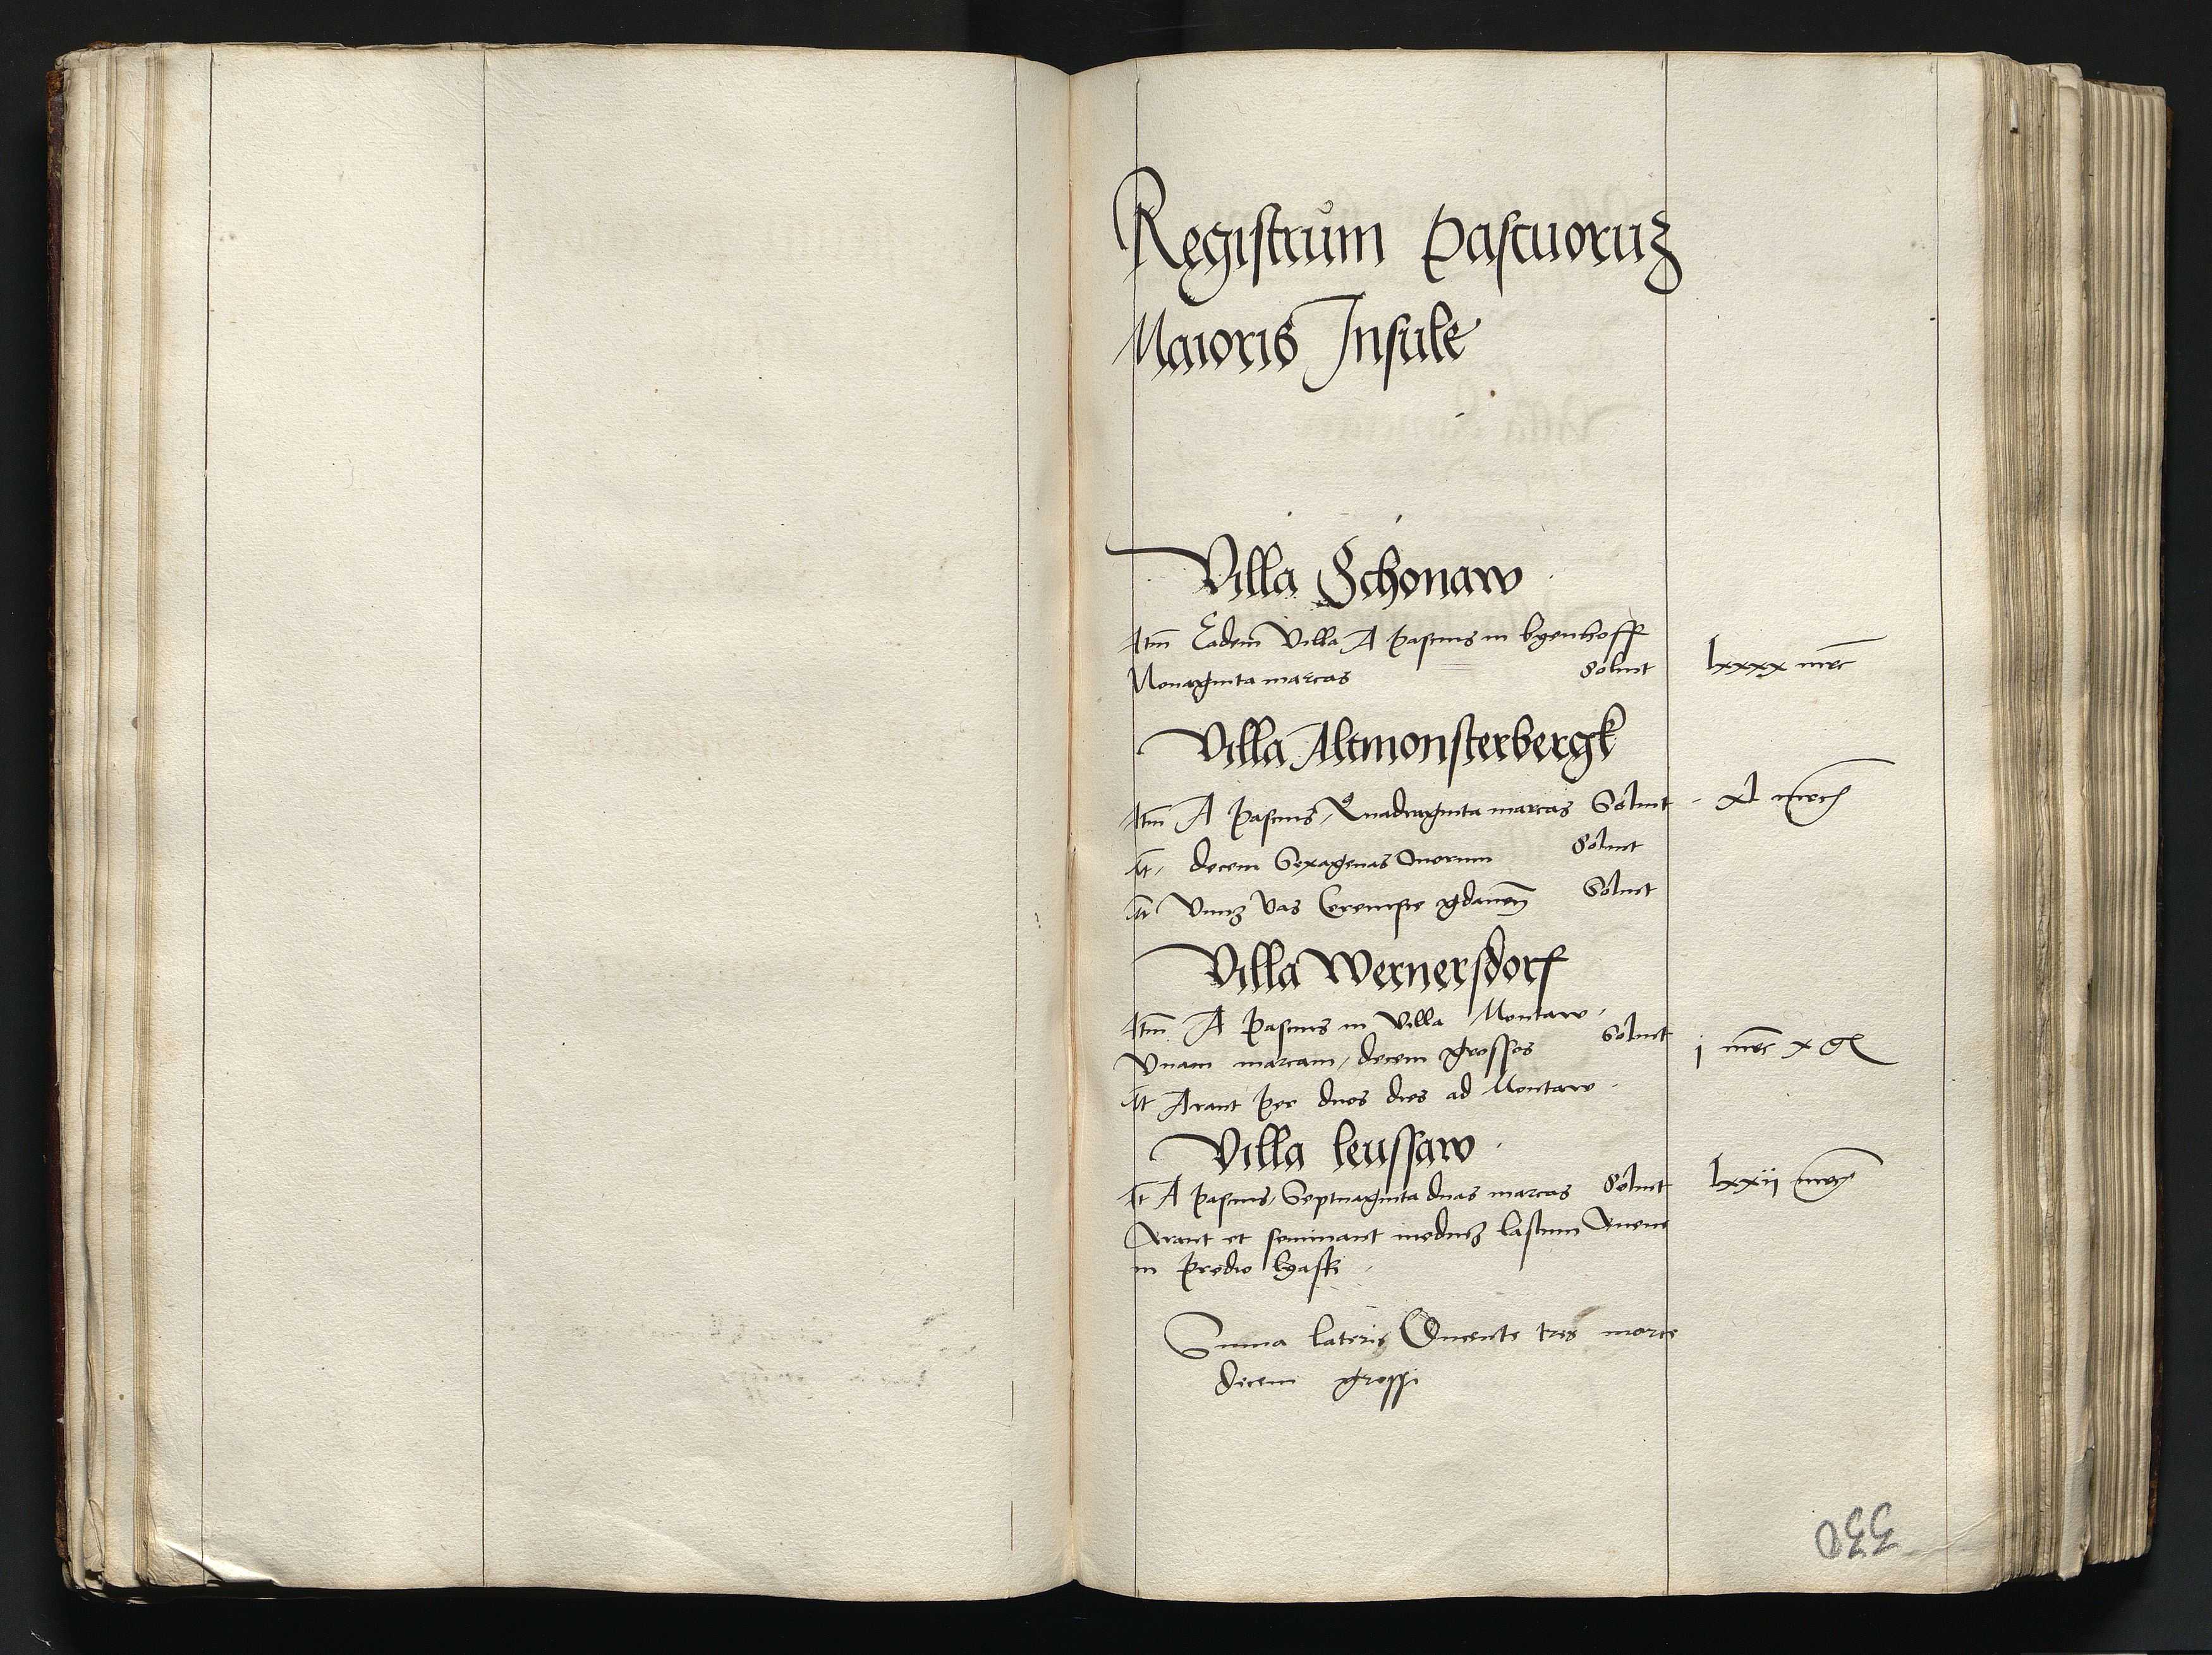 Registrum Pascuoruʒ
Maioris Insule
Villa Schonaw
Itm̄ Eadem Villa A Pascuis in leyenhoff
Nonaginta marcas Soluit lxxxx mrc̄
Villa Altmonsterbergk
Itm̄ A Pascuis Quadraginta marcas Soluit xl mrc̄
It̄ decem Sexagenas Ouorum Soluit
It̄ Vnuʒ Vas Cereuisie gdanen̄ Soluit
Villa Wernersdorf
Itm̄ A Pascuis in Villa Montaw
Vnam marcam decem grossos Soluit j mrc̄ x gr
It̄ Arant Per duos dies ad Montaw
Villa leussaw
It̄ A Pascuis Septuaginta duas marcas Soluit lxxij mrc̄
Arant et seminant mediuʒ lastum Auene
in Predio lyaski
Suma lateris Ducente tres marce
decem grossi
330